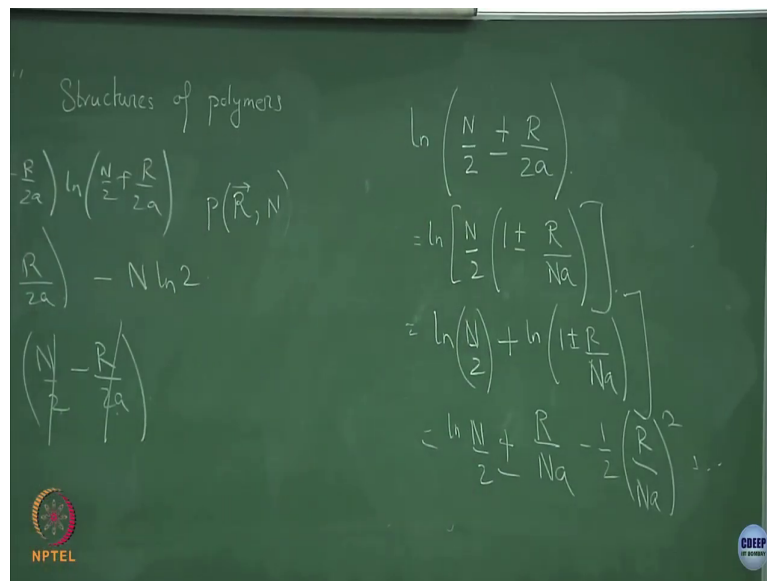 " Structures of polymers
R/2a) ln(N/2 + R/2a) P(R⃗, N)
R/2a) - N ln 2
(N/2 - R/2a)
ln(N/2 ± R/2a).
= ln[N/2 (1 ± R/Na)].
= ln(N/2) + ln(1 ± R/Na)]
= ln N/2 ± R/Na - 1/2 (R/Na)² + ...
NPTEL
CDEEP
IIT BOMBAY